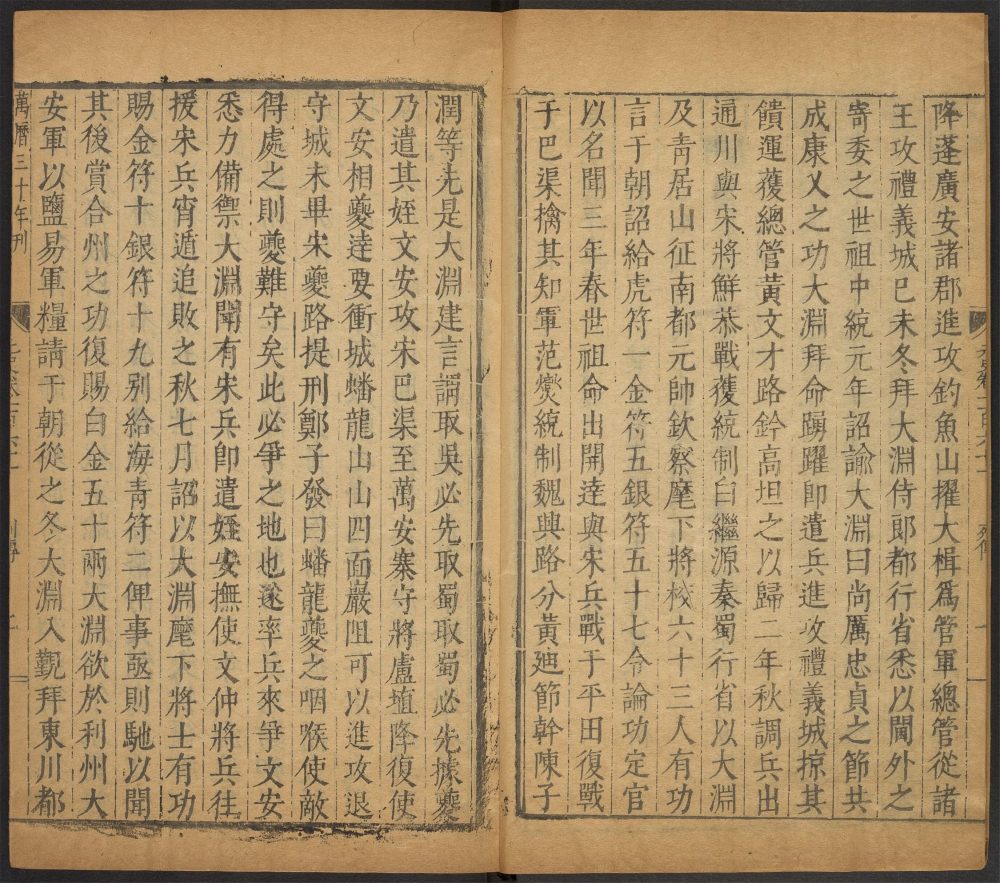 降蓬廣安諸郡進攻釣魚山擢大楫爲管軍總管從諸
王攻禮義城巳未冬拜大淵侍郎都行省悉以閫外之
寄委之世祖中統元年詔諭大淵曰尚厲忠貞之節共
成康乂之功大淵拜命踴躍卽遣兵進攻禮義城掠其
饋運獲總管黃文才路鈐高坦之以歸二年秋調兵出
通川與宋將鮮恭戰獲統制白繼源秦蜀行省以大淵
及靑居山征南都元帥欽察麾下將校六十三人有功
言于朝詔給虎符一金符五銀符五十七令論功定官
以名聞三年春世祖命出開達與宋兵戰于平田復戰
于巴渠擒其知軍范爕統制魏興路分黃廸節幹陳子
潤等先是大淵建言謂取吳必先取蜀取蜀必先據夔
乃遣其姪文安攻宋巴渠至萬安寨守將盧埴降復使
文安相夔達要衝城蟠龍山山四面巖阻可以進攻退
守城未畢宋夔路提刑鄭子發曰蟠龍夔之咽喉使敵
得處之則夔難守矣此必爭之地也遂率兵來爭文安
悉力備禦大淵聞有宋兵卽遣姪安撫使文仲將兵往
援宋兵宵遁追敗之秋七月詔以大淵麾下將士有功
賜金符十銀符十九别給海青符二俾事亟則馳以聞
其後賞合州之功復賜白金五十兩大淵欲於利州大
安軍以鹽易軍糧請于朝從之冬大淵入覲拜東川都
萬曆三十年刊